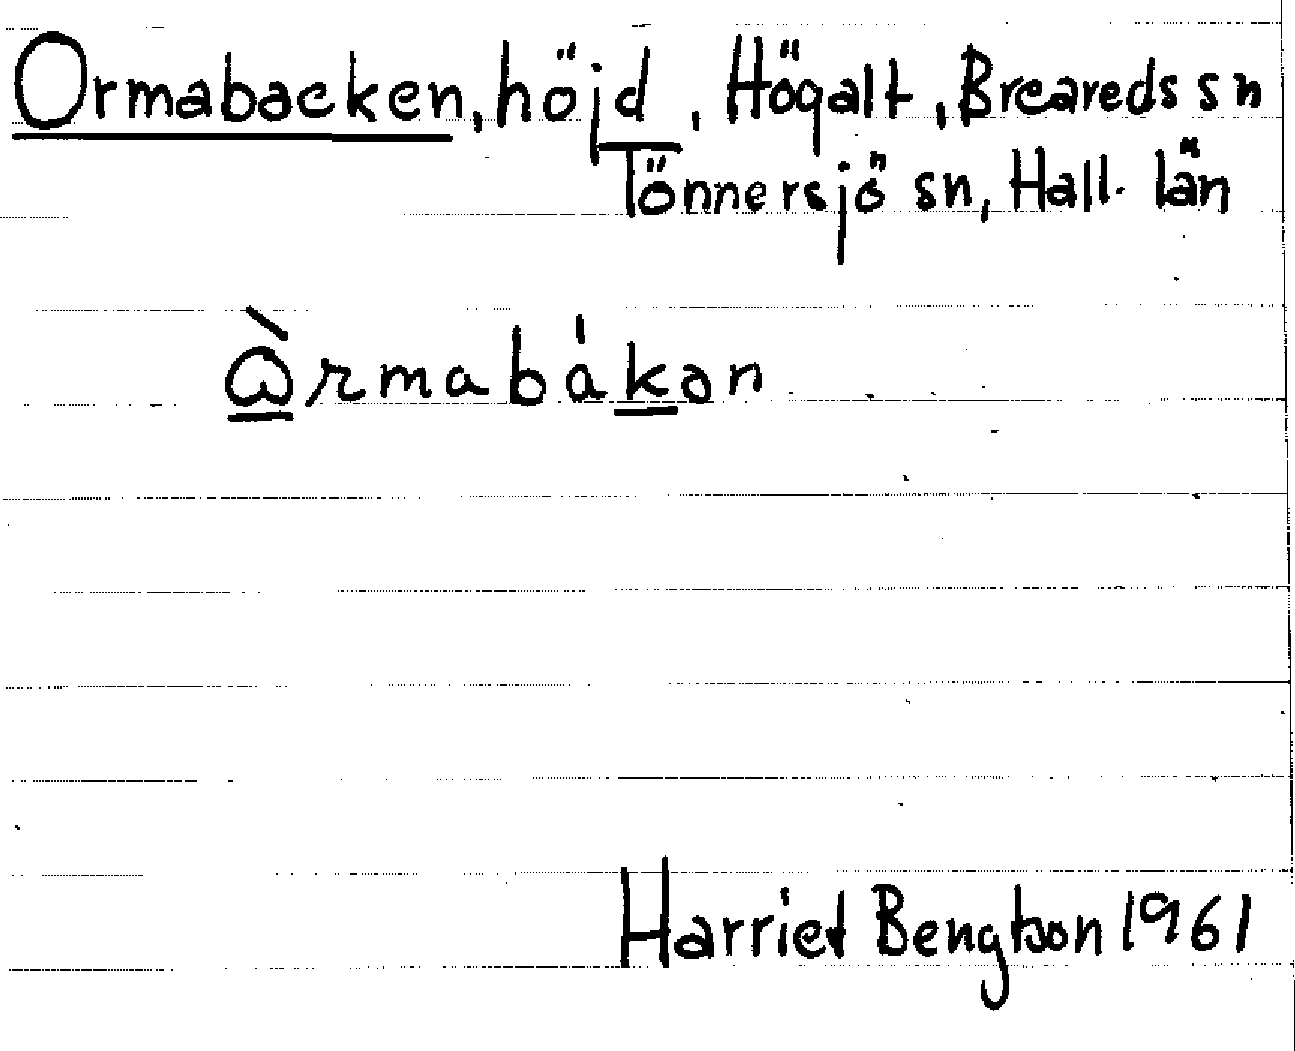 Ormabacken, höjd, Högalt, Breareds sn
Tönnersjö sn, Hall. län
ὼrmabákən
Harriet Bengtson 1961